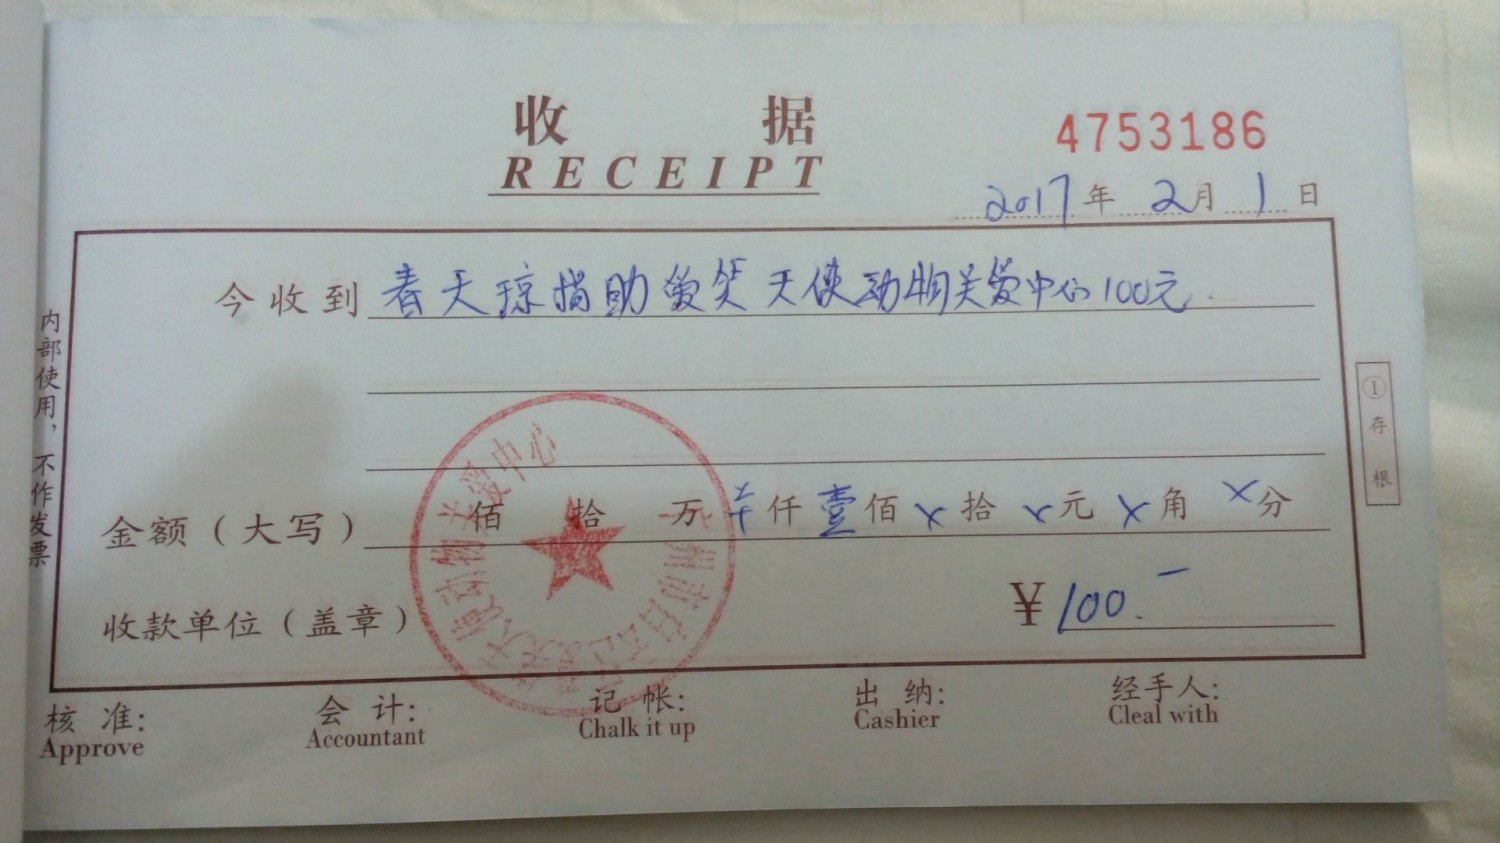 收 据
RECEIPT
4753186
2017年2月1日
今收到 春天琼捐助爱笑天使动物关爱中心100元.
金额(大写) 佰 拾 万 仟 壹佰 x拾 x元 x角 x分
收款单位(盖章)
¥100.—
广州市白云区爱笑天使动物关爱中心
内部使用，不作发票
① 存根
核 准: 会 计: 记 帐: 出 纳: 经手人:
Approve Accountant Chalk it up Cashier Cleal with